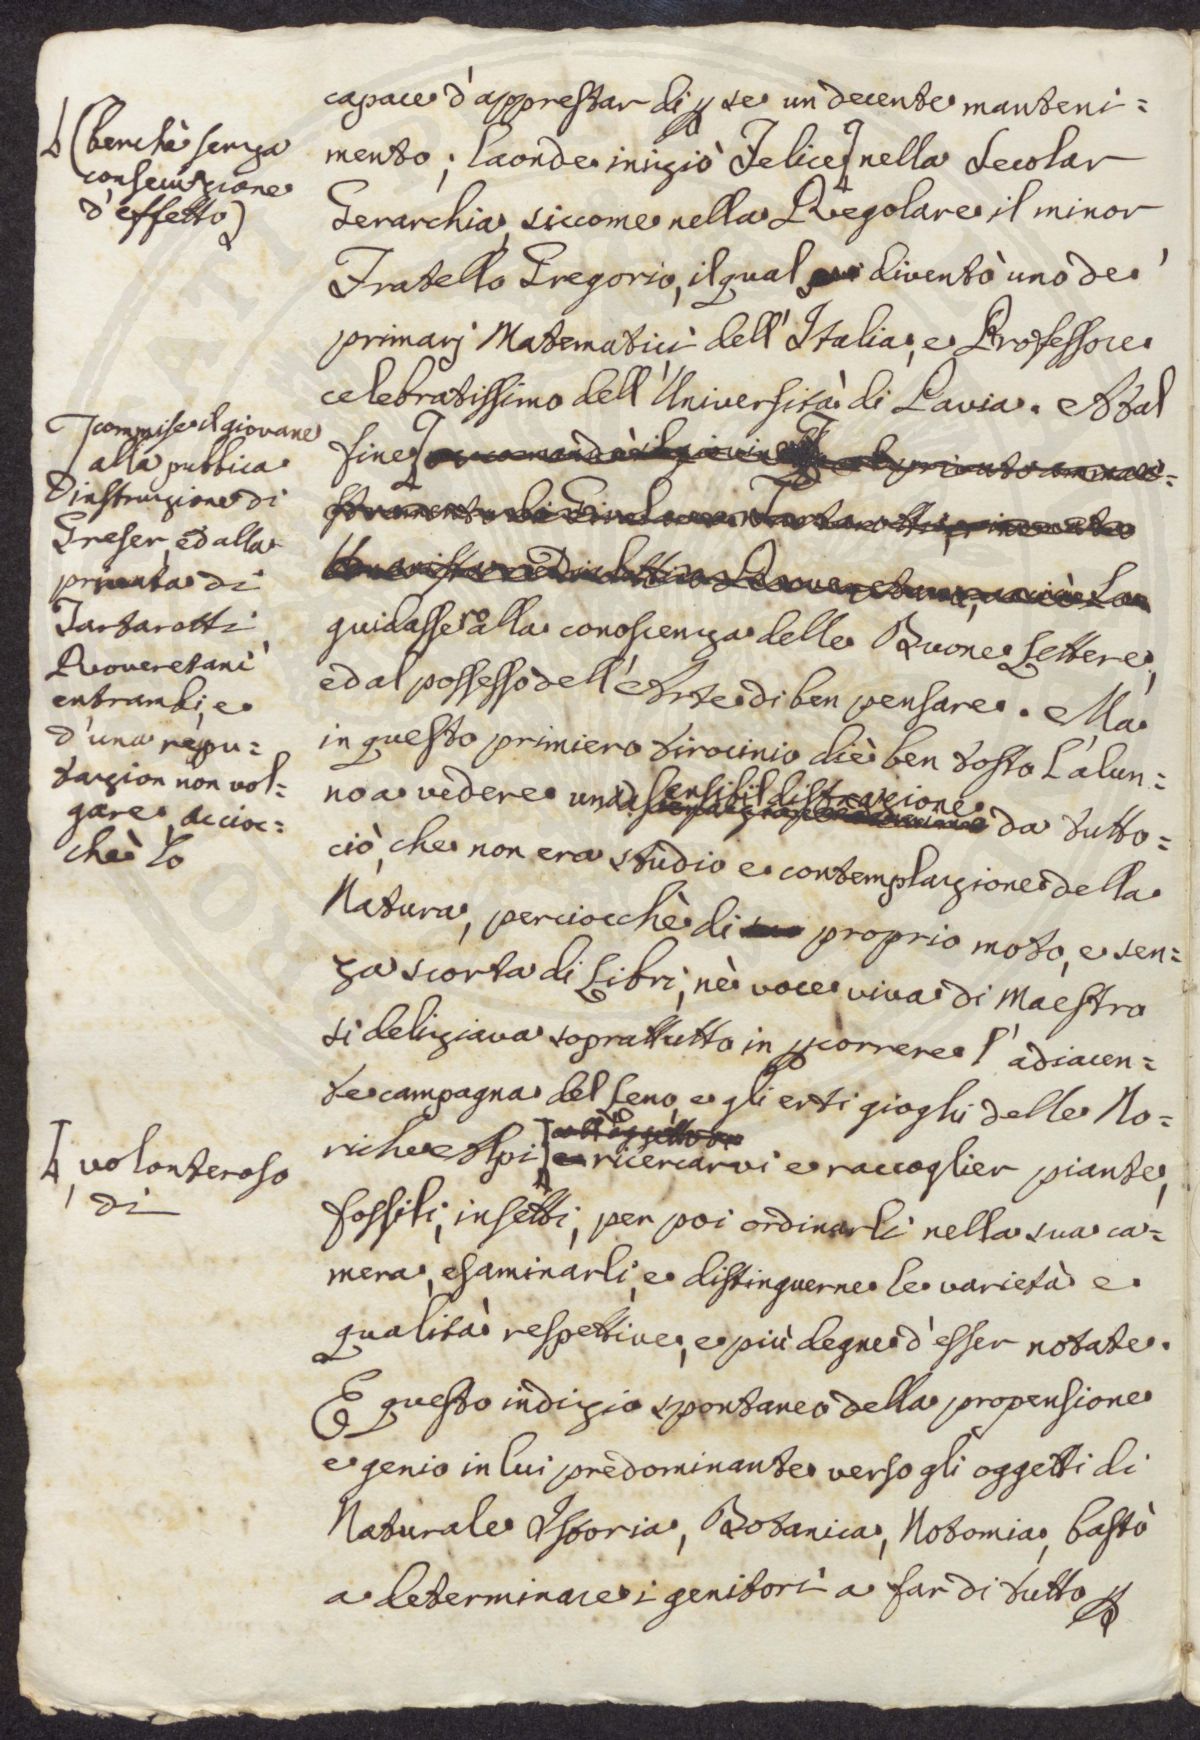 capace d'apprestar di p se un decente manteni=
mento; laonde iniziò Felice nella Secolar
Gerarchia, siccome nella Regolare il minor
Fratello Gregorio, il qual diventò uno de'
primarj Matematici dell'Italia, e Professore
celebratissimo dell'Università di Pavia. A tal
fine
guidassero alla conoscenza delle Buone Lettere,
ed al possesso dell'Arte di ben pensare. Ma
in questo primiero tirocinio diè ben tosto l'alun=
no a vedere una sensibil distrazione da tutto=
ciò, che non era studio e contemplazione della
Natura, perciocchè di proprio moto, e sen=
za scorta di Libri, nè voce viva di Maestro
si deliziava soprattutto in pcorrere l'adiacen=
te campagna del Leno, e gli erti gioghi delle No=
riche Alpi ricercarvi e raccoglier piante,
fossili, insetti, per poi ordinarli nella sua ca=
mera, esaminarli, e distinguerne le varietà e
qualità respettive, e più degne d'esser notate.
E questo indizio spontaneo della propensione
e genio in lui predominante verso gli oggetti di
Naturale Istoria, Botanica, Notomia, bastò
a determinare i genitori a far di tutto p
(benchè senza
consecuzione
d'effetto)
commise il giovane
alla pubbica
instruzione di
Greser, ed alla
privata di
Tartarotti
Roveretani
entrambi, e
d'una repu=
tazion non vol=
gare accioc=
chè lo
, volonteroso
di